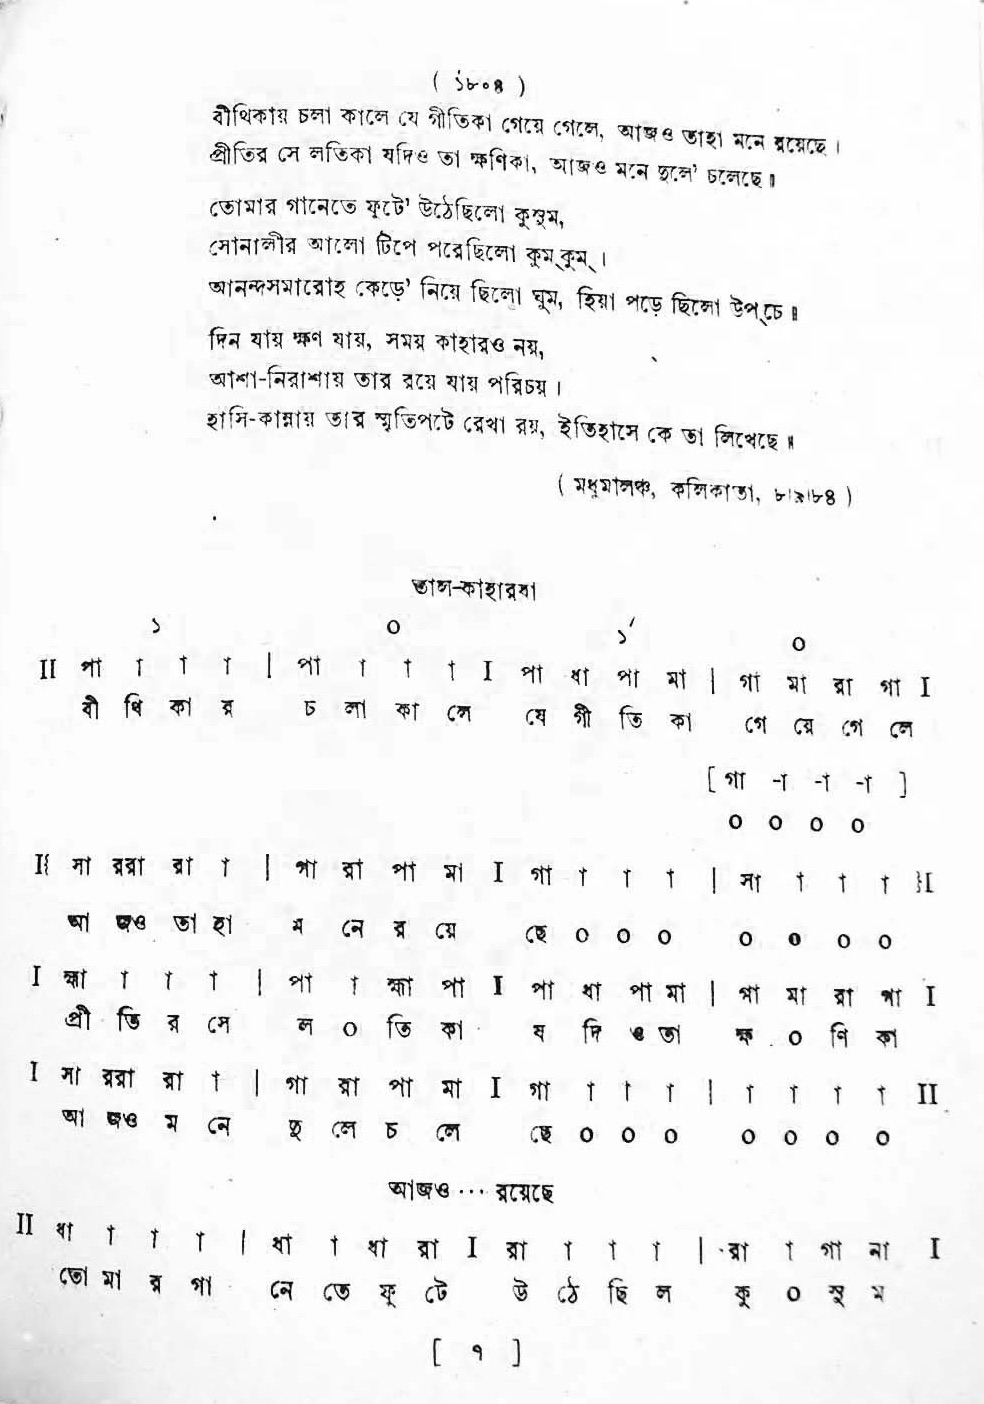 ( ১৮০৪ )
বীথিকায় চলা কালে যে গীতিকা গেয়ে গেলে, আজও তাহা মনে রয়েছে ।
প্রীতির সে লতিকা যদিও তা ক্ষণিকা, আজও মনে দুলে' চলেছে ॥
তোমার গানেতে ফুটে' উঠেছিলো কুসুম,
সোনালীর আলো টিপে পরেছিলো কুম্‌কুম্‌ ।
আনন্দসমারোহ কেড়ে' নিয়ে ছিলো ঘুম, হিয়া পড়ে ছিলো উপ্‌চে ॥
দিন যায় ক্ষণ যায়, সময় কাহারও নয়,
আশা-নিরাশায় তার রয়ে যায় পরিচয় ।
হাসি-কান্নায় তার স্মৃতিপটে রেখা রয়, ইতিহাসে কে তা লিখেছে ॥
( মধুমালঞ্চ, কলিকাতা, ৮।৯।৮৪ )
তাল-কাহারবা
১ ০ ১´ ০
II পা া া া | পা া া া I পা ধা পা মা | গা মা রা গা I
বী থি কা য় চ লা কা লে যে গী তি কা গে য়ে গে লে
[ গা -া -া -া ]
০ ০ ০ ০
I{ সা ররা রা া | গা রা পা মা I গা া া া | সা া া া }I
আ জও তা হা ম নে র য়ে ছে ০ ০ ০ ০ ০ ০ ০
I হ্মা া া া | পা া হ্মা পা I পা ধা পা মা | গা মা রা গা I
প্রী তি র সে ল ০ তি কা য দি ও তা ক্ষ ০ ণি কা
I সা ররা রা া | গা রা পা মা I গা া া া | া া া া II
আ জও ম নে দু লে চ লে ছে ০ ০ ০ ০ ০ ০ ০
আজও ··· রয়েছে
II ধা া া া | ধা া ধা রা I রা া া া | রা া গা না I
তো মা র গা নে তে ফু টে উ ঠে ছি ল কু ০ সু ম
[ ৭ ]